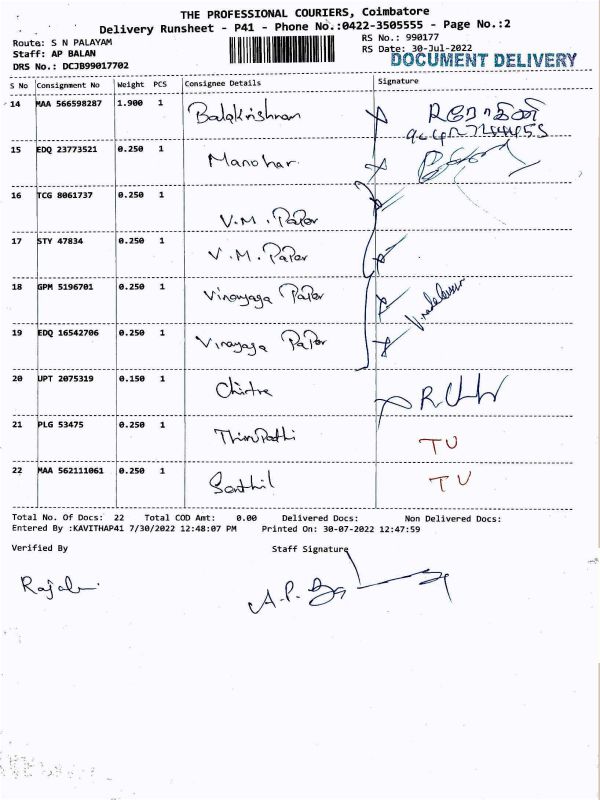 THE PROFESSIONAL COURIERS, Coimbatore
Delivery Runsheet - P41 - Phone No.:0422-3505555 - Page No.:2
Route: S N PALAYAM
RS No.: 990177
Staff: AP BALAN
RS Date: 30-Jul-2022
DRS No.: DCJB99017702
DOCUMENT DELIVERY
S No Consignment No Weight PCS Consignee Details Signature
14 MAA 566598287 1.900 1 Balakrishnan
15 EDQ 23773521 0.250 1 Manohar
16 TCG 8061737 0.250 1 V.M. Paper
17 STY 47834 0.250 1 V.M. Paper
18 GPM 5196701 0.250 1 Vinayaga Paper
19 EDQ 16542706 0.250 1 Vinayaga Paper
20 UPT 2075319 0.150 1 Chitra
21 PLG 53475 0.250 1 Thirupathi TU
22 MAA 562111061 0.250 1 Senthil TU
Total No. Of Docs: 22 Total COD Amt: 0.00 Delivered Docs: Non Delivered Docs:
Entered By :KAVITHAP41 7/30/2022 12:48:07 PM Printed On: 30-07-2022 12:47:59
Verified By Staff Signature